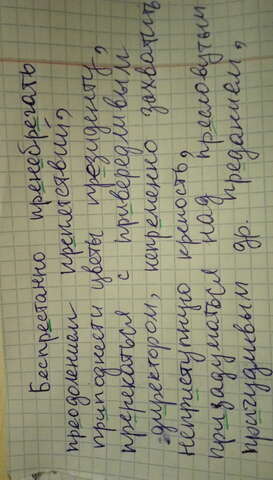 Беспрестанно пренебрегать
преодолением препятствий,
приподнести цветы президенту,
пререкаться с привередливым
директором, непременно захватить
неприступную крепость,
призадуматься над пресловутым
причудливым др. преданием,